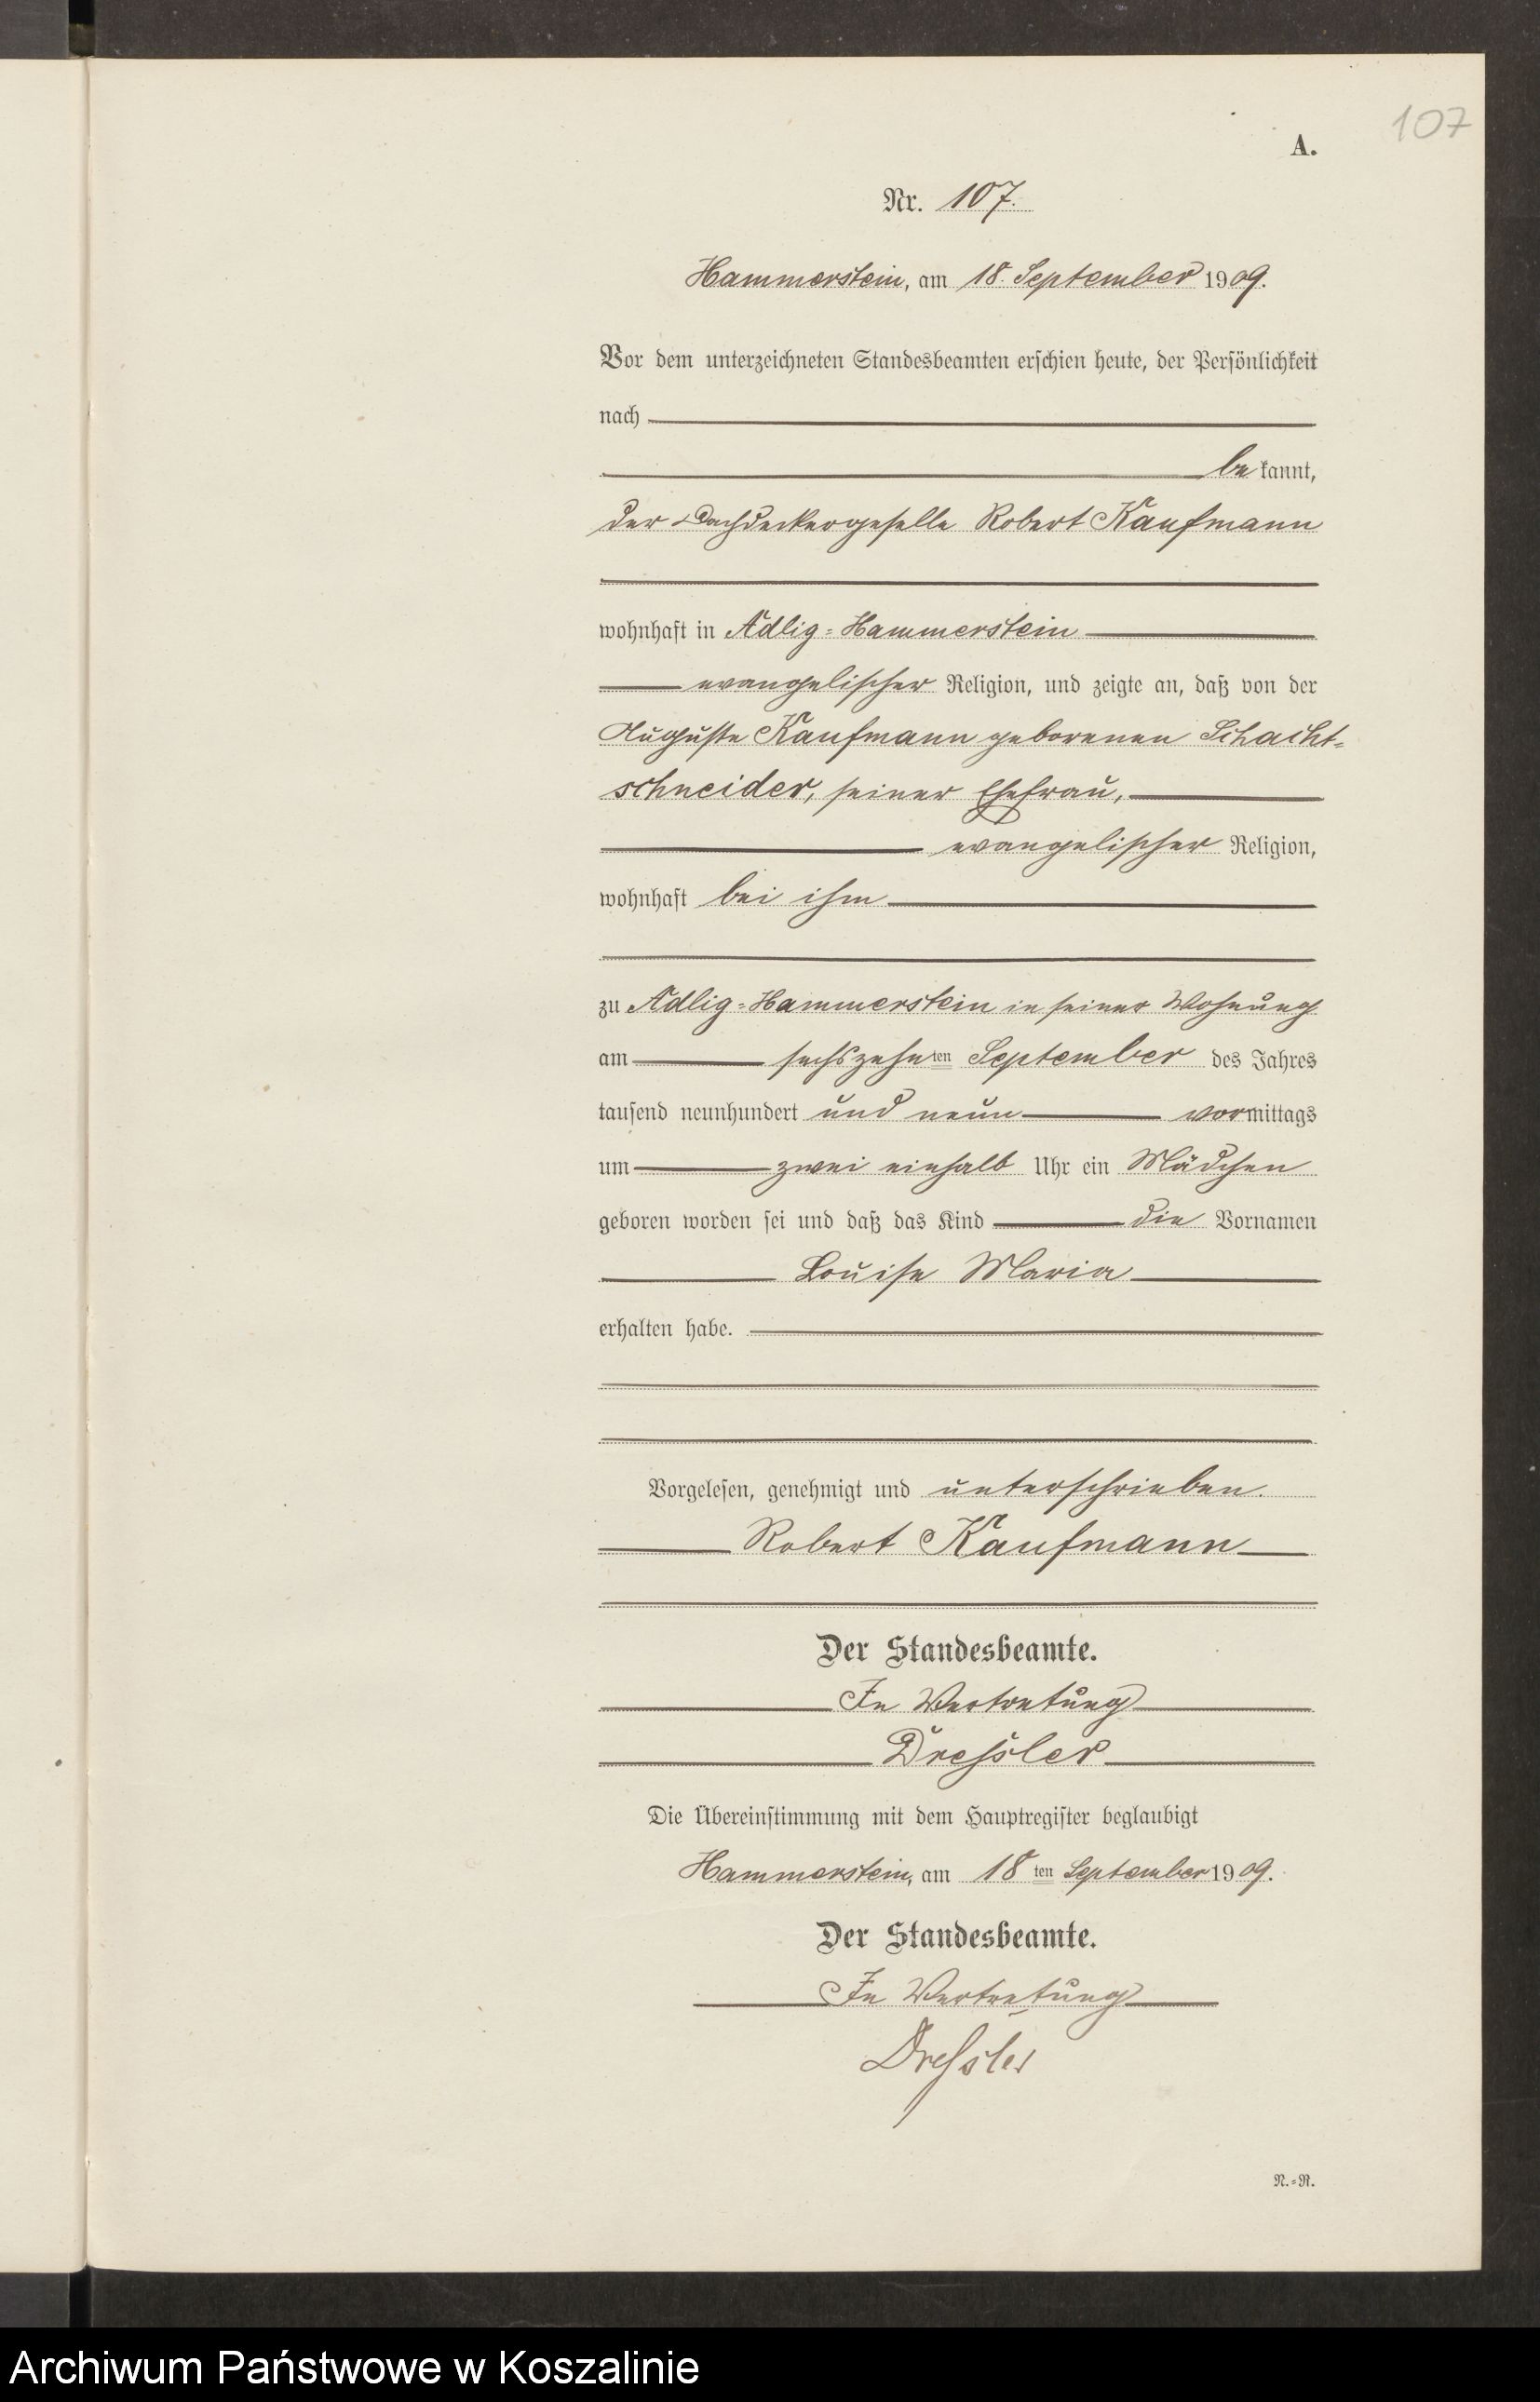 107
A.
Nr. 107.
Hammerstein, am 18. September 1909.
Vor dem unterzeichneten Standesbeamten erschien heute, der Persönlichkeit
nach
bekannt,
der Dachdeckergeselle Robert Kaufmann
wohnhaft in Adlig-Hammerstein
evangelischer Religion, und zeigte an, daß von der
Auguste Kaufmann geborenen Schacht-
schneider, seiner Ehefrau,
evangelischer Religion,
wohnhaft bei ihm
zu Adlig-Hammerstein in seiner Wohnung
am sechszehnten September des Jahres
tausend neunhundert und neun vormittags
um zwei einhalb Uhr ein Mädchen
geboren worden sei und daß das Kind die Vornamen
Louise Maria
erhalten habe.
Vorgelesen, genehmigt und unterschrieben.
Robert Kaufmann
Der Standesbeamte.
In Vertretung
Dressler
Die Übereinstimmung mit dem Hauptregister beglaubigt
Hammerstein, am 18ten September 1909.
Der Standesbeamte.
In Vertretung
Dressler
N.-R.
Archiwum Państwowe w Koszalinie